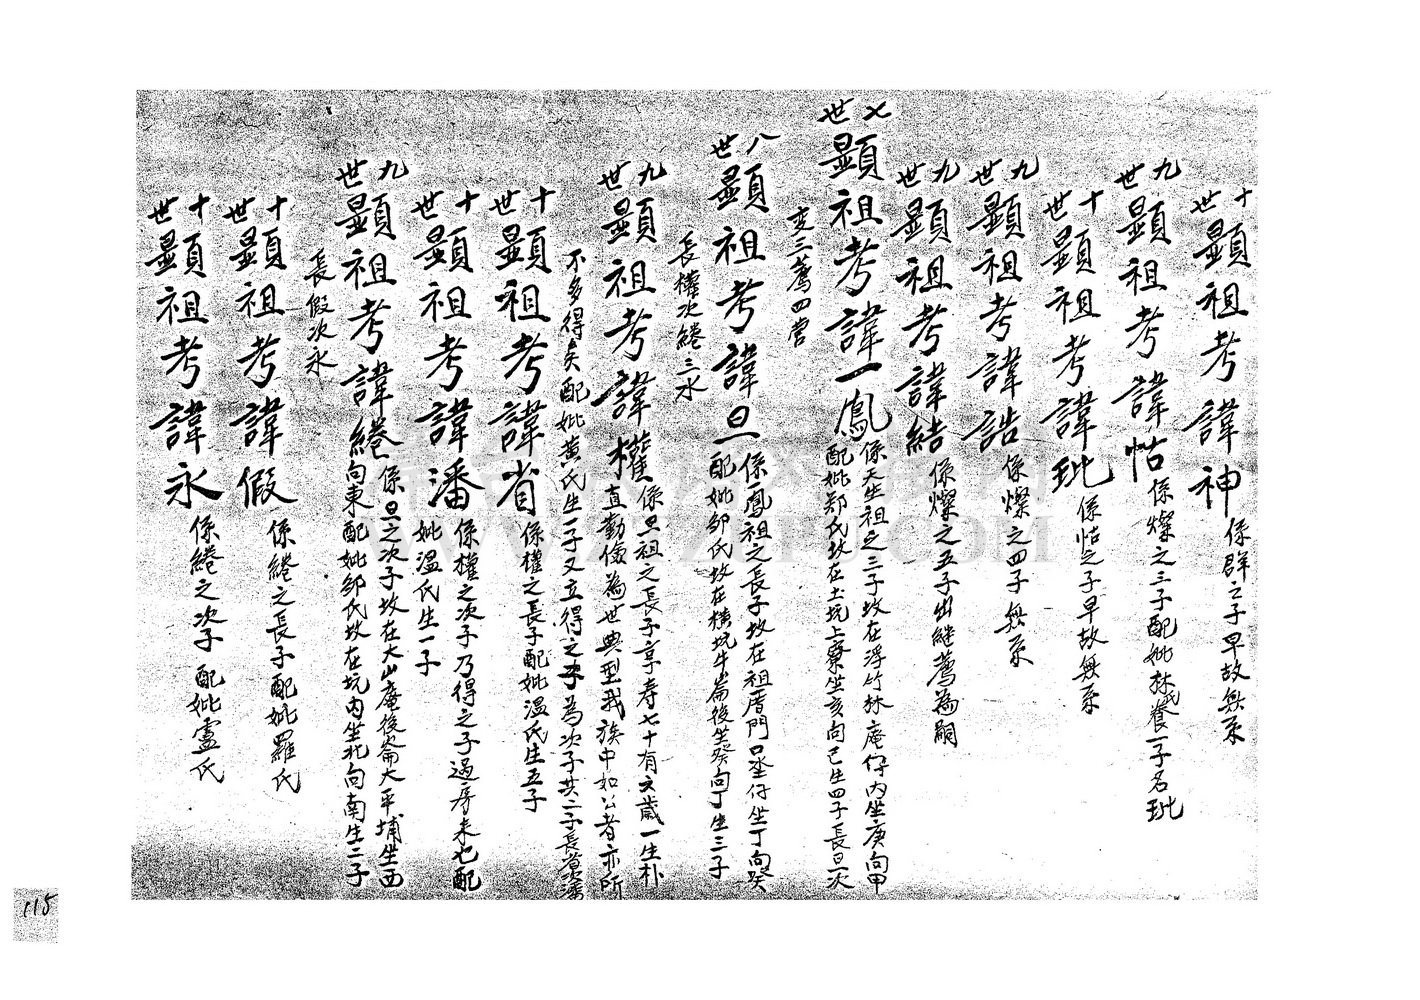 十世顯祖考諱神 係群之子早故無系
九世顯祖考諱怙 係燦之三子配妣林氏養一子名玭
十世顯祖考諱玭 係怙之子早故無系
九世顯祖考諱誥 係燦之四子無系
九世顯祖考諱結 係燦之五子出継薦為嗣
七世顯祖考諱一鳳 係天生祖之三子坟在浮竹林庵仔內坐庚向甲
配妣郑氏坟在土坑上寮坐亥向己生四子長旦次
变三薦四营
八世顯祖考諱旦 係一鳳祖之長子坟在祖厝門口丞仔坐丁向癸
配妣邹氏坟在横坑牛崙後坐癸向丁生三子
長權次綣三水
九世顯祖考諱權 係旦祖之長子享寿七十有六歲一生朴
直勤儉為世典型我族中如公者亦所
不多得矣配妣黃氏生一子又立得之次子為次子共二子長省次潘
十世顯祖考諱省 係權之長子配妣溫氏生五子
十世顯祖考諱潘 係權之次子乃得之子過房来也配
妣溫氏生一子
九世顯祖考諱綣 係旦之次子坟在大山庵後崙大平埔坐西
向東配妣邹氏坟在坑内坐北向南生二子
長假次永
十世顯祖考諱假 係綣之長子配妣羅氏
十世顯祖考諱永 係綣之次子配妣盧氏
115